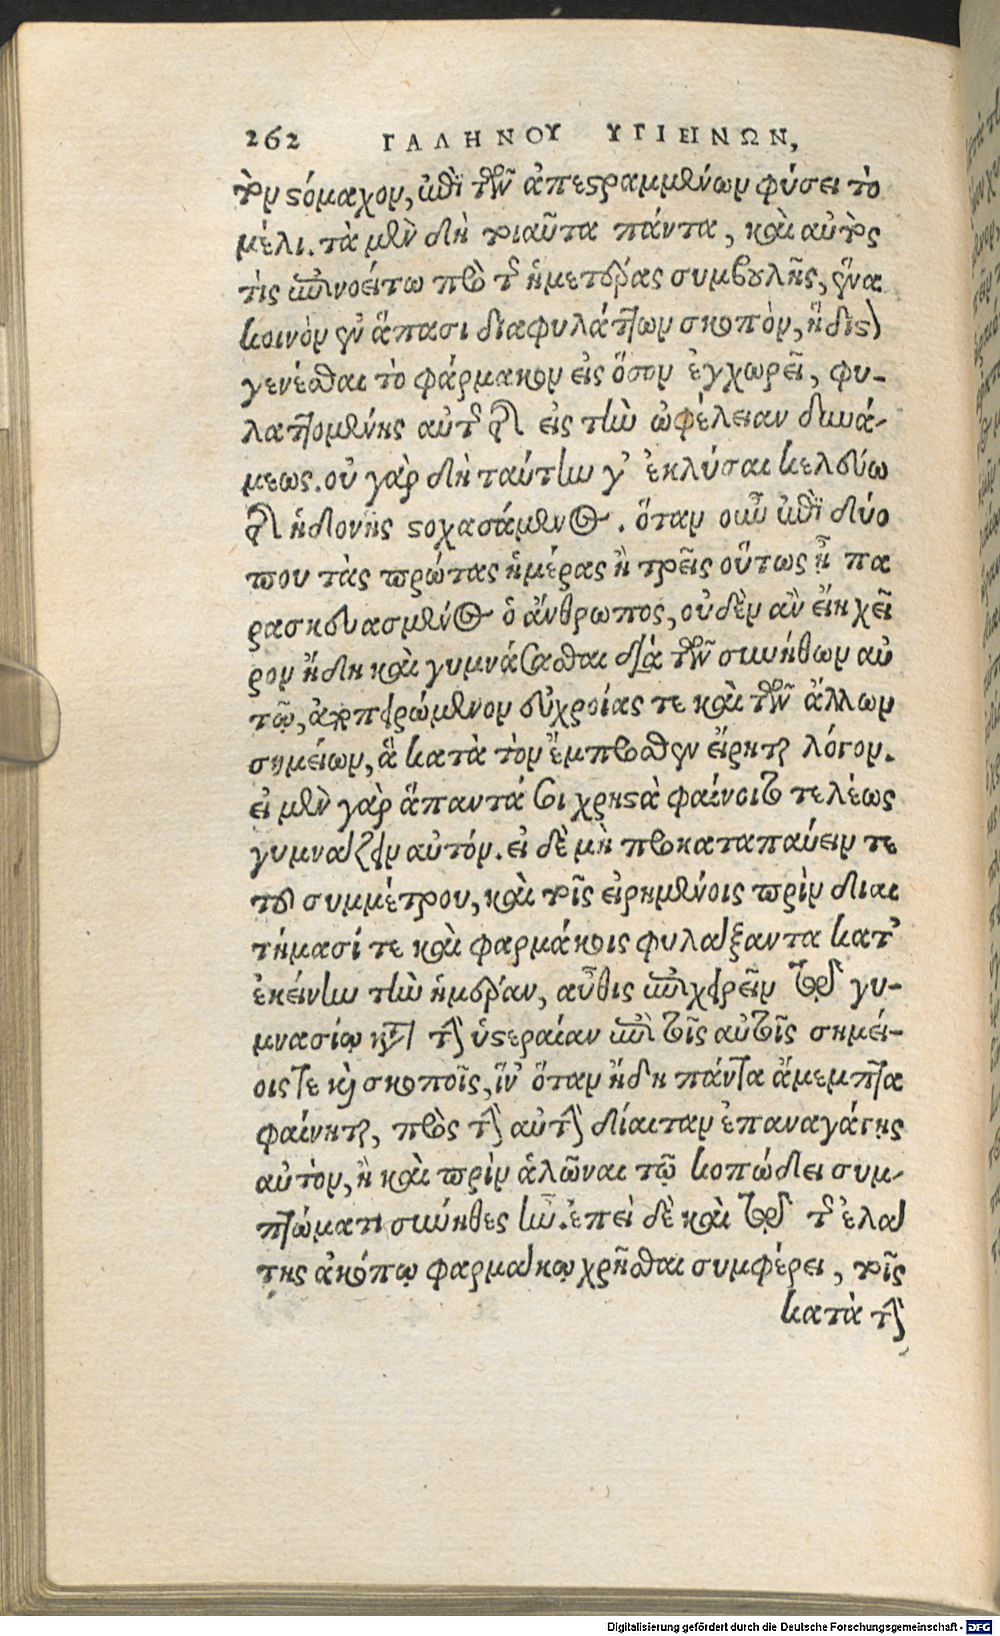 262 ΓΑΛΗΝΟΥ ΥΓΙΕΙΝΩΝ,
τὸν στόμαχον, ἐπὶ τῶν ἀπεστραμμένων φύσει τὸ
μέλι. τὰ μὲν δὴ τοιαῦτα πάντα, καὶ αὐτός
τις ἐπινοείτω πρὸ τῆς ἡμετέρας συμβουλῆς, ἕνα
κοινὸν ἐν ἅπασι διαφυλάττων σκοπὸν, ἥδιστον
γενέσθαι τὸ φάρμακον εἰς ὅσον ἐγχωρεῖ, φυ-
λαττομένης αὐτοῦ τῆς εἰς τὴν ὠφέλειαν δυνά-
μεως. οὐ γὰρ δὴ ταύτην γ' ἐκλύσαι κελεύω
τῆς ἡδονῆς στοχασάμενος. ὅταν οὖν ἐπὶ δύο
που τὰς πρώτας ἡμέρας ἢ τρεῖς οὕτως ᾖ πα
ρασκευασμένος ὁ ἄνθρωπος, οὐδὲν ἂν εἴη χεῖ
ρον ἤδη καὶ γυμνάσασθαι διὰ τῶν συνήθων αὐ
τῷ, στοχαζόμενον εὐχροίας τε καὶ τῶν ἄλλων
σημείων, ἃ κατὰ τὸν ἔμπροσθεν εἴρηται λόγον.
εἰ μὲν γὰρ ἅπαντά σοι χρηστὰ φαίνοιτο τελέως
γυμνάζειν αὐτόν. εἰ δὲ μὴ προκαταπαύειν τε
τοῦ συμμέτρου, καὶ τοῖς εἰρημένοις πρὶν διαι
τήμασί τε καὶ φαρμάκοις φυλάξαντα κατ'
ἐκείνην τὴν ἡμέραν, αὖθις ἐπιχειρεῖν τῷ γυ-
μνασίῳ κατὰ τὴν ὑστεραίαν ἐπὶ τοῖς αὐτοῖς σημεί-
οις τε καὶ σκοποῖς, ἵν' ὅταν ἤδη πάντα ἄμεμπτα
φαίνηται, πρὸς τὴν αὐτὴν δίαιταν ἐπαναγάγῃς
αὐτὸν, ᾗ καὶ πρὶν ἁλῶναι τῷ κοπώδει συμ-
πτώματι συνήθης ἦν. ἐπεὶ δὲ καὶ τῷ τῆς ἐλά
της ἀκόπῳ φαρμάκῳ χρῆσθαι συμφέρει, τοῖς
κατὰ τὴν